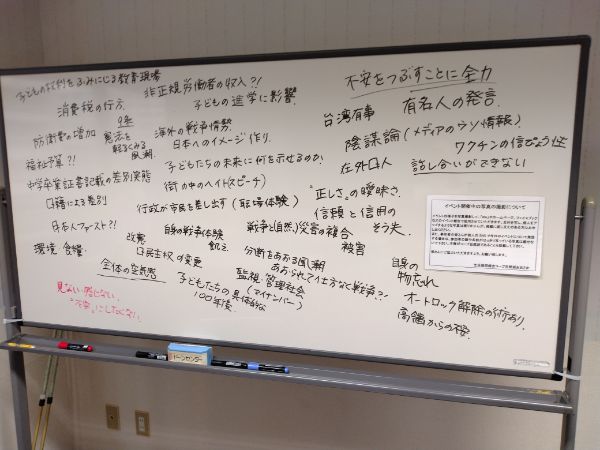 子どもの権利をふみにじる教育現場
消費税の行方
防衛費の増加
9条
憲法を
軽るくみる
風潮
福祉予算?!
中学卒業証書記載の差別実態
口籍による差別
日本人ファースト?!
環境・食糧
改憲
口民主权の変更
全体の空気感
見ない 感じない
"不安"にしたくない
非正規労働者の収入?!
子どもの進学に影響
海外の戦争情勢
日本へのイメージ作り
子どもたちの未来に何を示せるのか?
街の中のヘイト(スピーチ)
行政が市民を差し出す(職場体験)
自身の戦争体験
飢え
戦争と(自然)災害の複合
被害
分断をあおる風潮
あおられて仕方なく戦争?!
監視・管理社会
(マイナンバー)
子どもたちの具体的な
100年後
不安をつぶすことに全力
台湾有事
有名人の発言
陰謀論(メディアのウソ情報)
ワクチンの信ぴょう性
在外口人
話し合いができない
"正しさ"の曖昧さ
信頼と信用の
そう失
自身の
物忘れ
オートロック解除の術あり
高齢からの不安
イベント開催中の写真の撮影について
パーツセンター